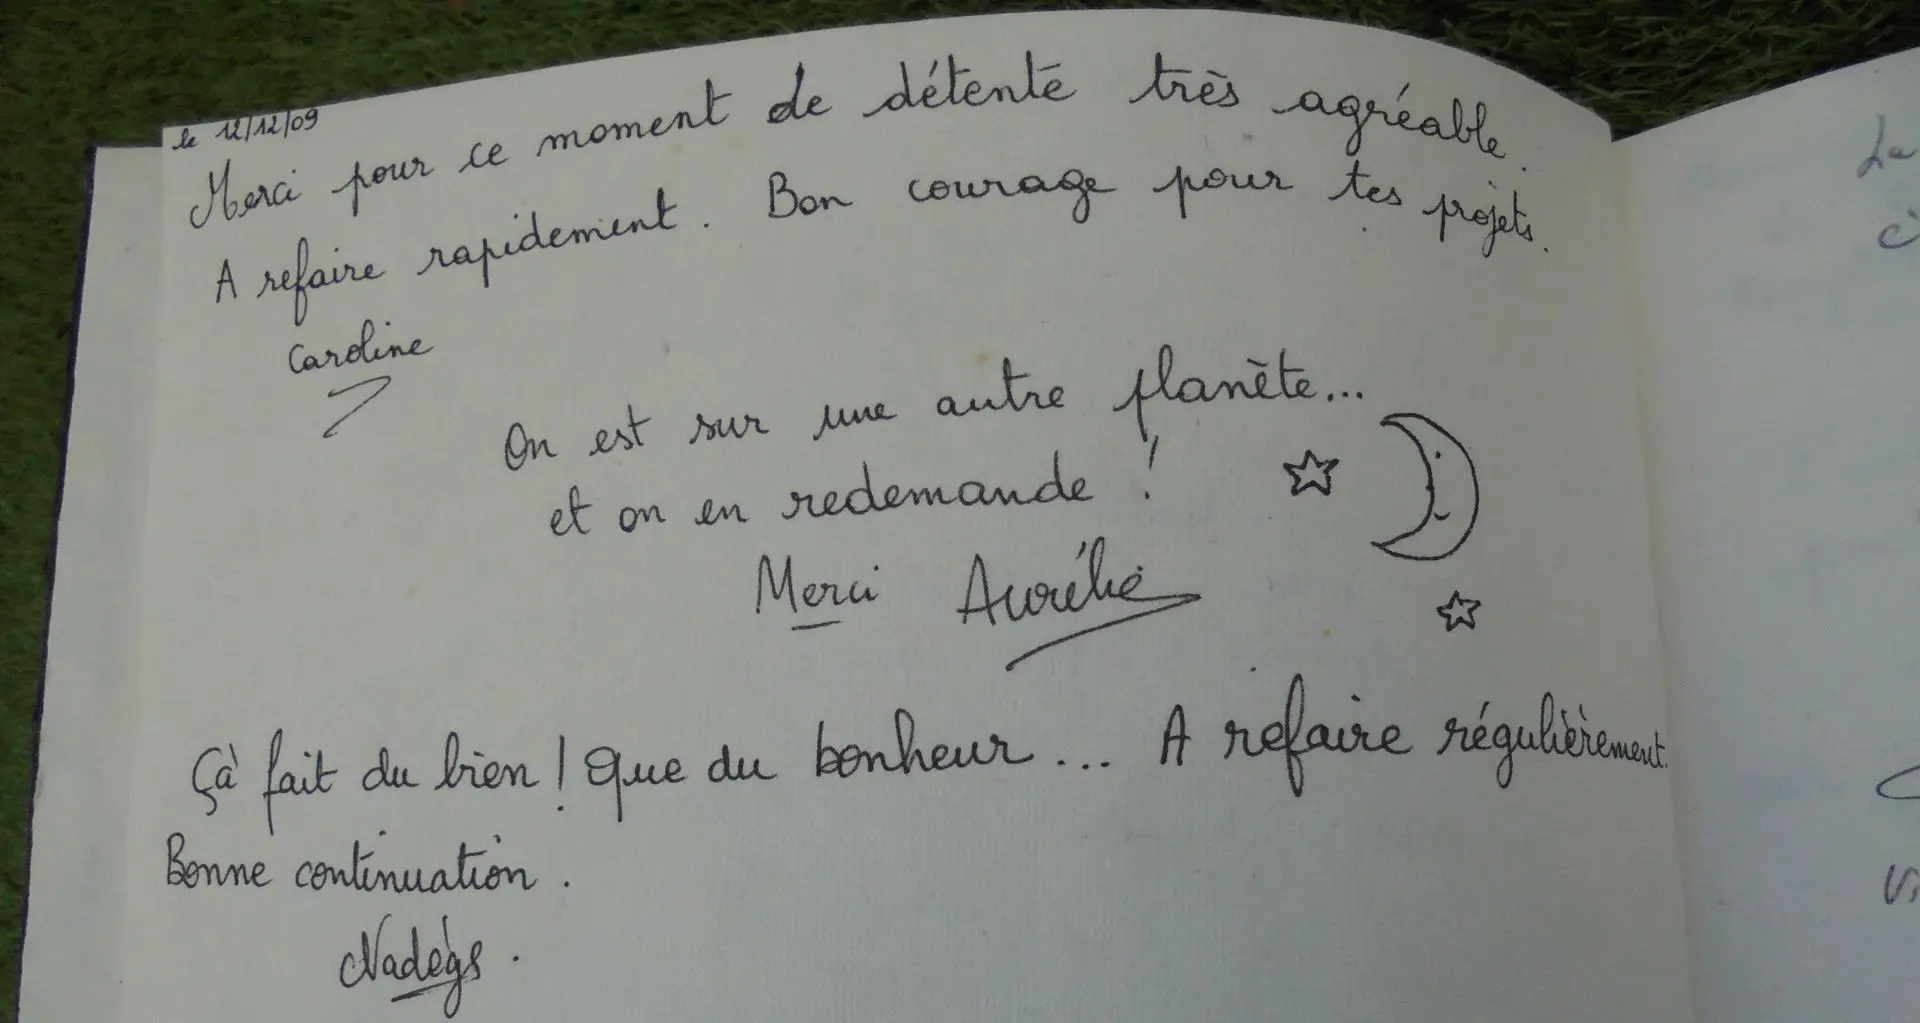 le 12/12/09
Merci pour ce moment de détente très agréable.
A refaire rapidement. Bon courage pour tes projets.
Caroline
On est sur une autre planète...
et on en redemande !
Merci Aurélie
Çà fait du bien ! Que du bonheur ... A refaire régulièrement.
Bonne continuation.
Nadège.